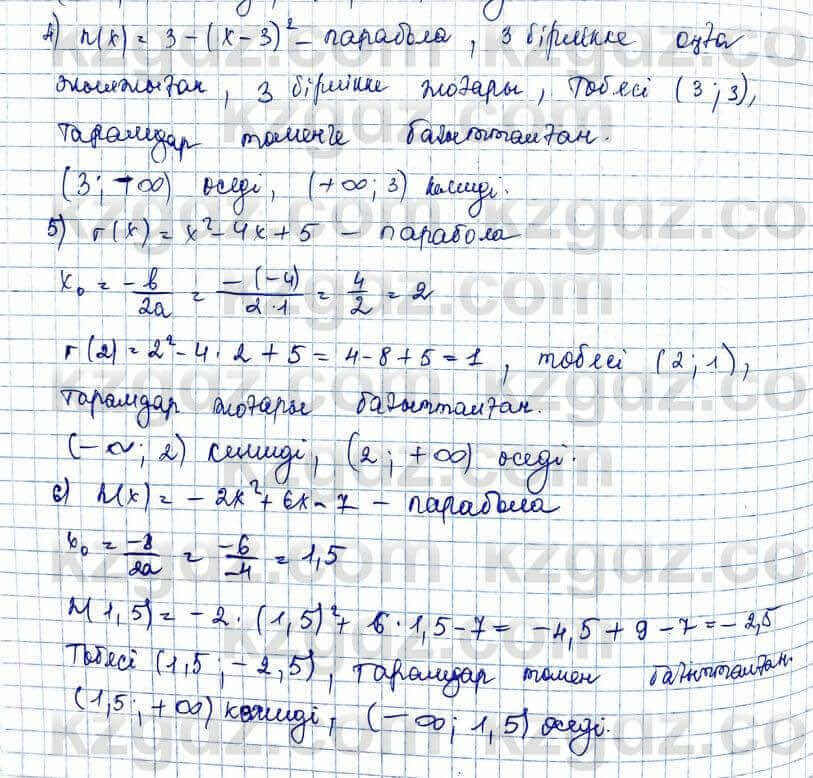 4) h(x) = 3 - (x - 3)² - парабола, 3 бірлікке оңға
жылжыған, 3 бірлікке жоғары, төбесі (3; 3),
тарамдар төменге бағытталған.
(3; +∞) өседі, (+∞; 3) кемиді.
5) r(x) = x² - 4x + 5 - парабола
x₀ = -b/2a = -(-4)/2·1 = 4/2 = 2
r(2) = 2² - 4·2 + 5 = 4 - 8 + 5 = 1, төбесі (2; 1),
тарамдар жоғары бағытталған.
(-∞; 2) кемиді, (2; +∞) өседі.
6) h(x) = -2x² + 6x - 7 - парабола
x₀ = -b/2a = -6/-4 = 1,5
h(1,5) = -2·(1,5)² + 6·1,5 - 7 = -4,5 + 9 - 7 = -2,5
Төбесі (1,5; -2,5), тарамдар төмен бағытталған.
(1,5; +∞) кемиді, (-∞; 1,5) өседі.
kzgdz.com